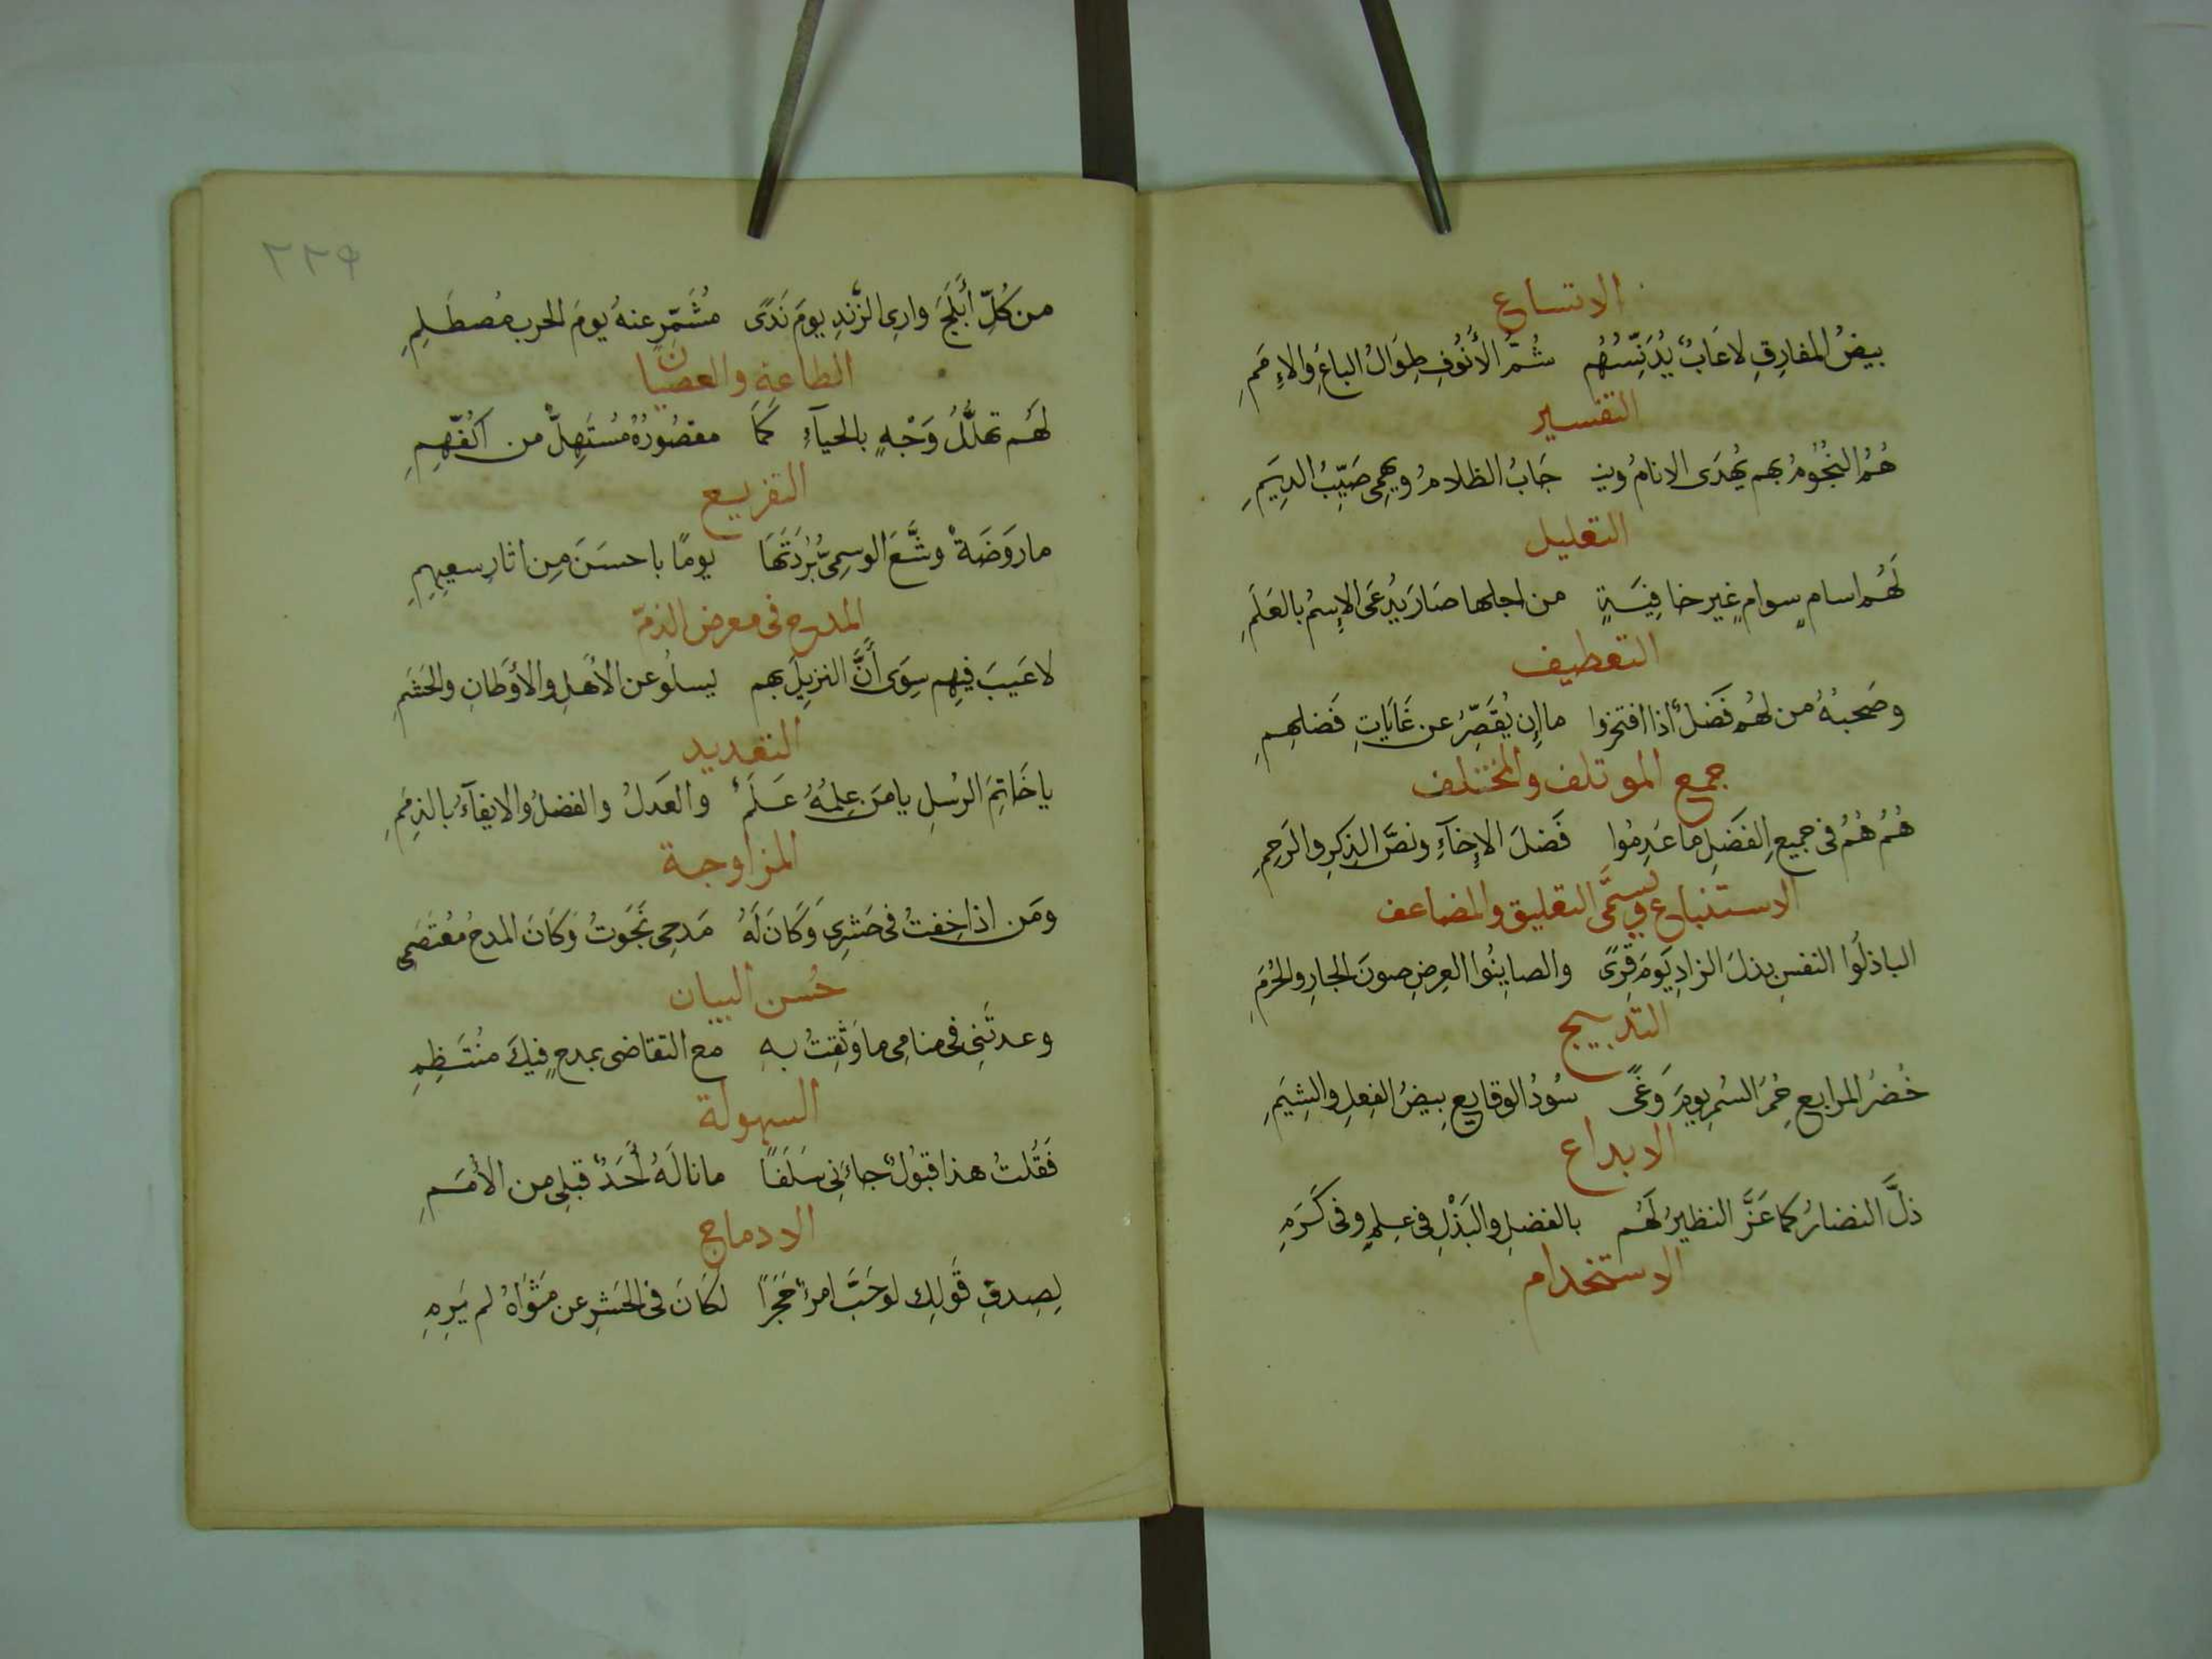 الاتساع
بيضُ المفارِقِ لاعَابٌ يُدَنِّسُهُم شُمُّ الأُنُوفِ طِوَالُ الباعِ والاِمَمِ
التفسير
هُمُ النُجُومُ بهم يُهدَى الانامُ وين جَابُ الظلامُ ويهمِى صَيِّبُ الدِيَمِ
التعليل
لَهُم اسامٍ سوامٍ غيرِ خافِيَةٍ من اجلها صَارَ يُدعَى الإسمُ بالعَلَمِ
التعطيف
وصَحبُهُ من لهُم فَضلٌ اذا افتخروا ما إن يُقَصِّرُ عن غَايَاتِ فَضلهِمِ
جمع الموتلف والمختلف
هُمُ هُمُ فى جميعِ الفَضلِ ما عَدِمُوا فَضلَ الإخآءِ ونصَّ الذِكرِ والرَحِمِ
الاستتباع ويسمَّى التعليق والمضاعف
الباذلُوا النفسِ بذلَ الزادِ يَومَ قِرًى والصاينُوا العِرضِ صونَ الجارِ والحُرَمِ
التدبيج
خُضرُ المرابع حُمرُ السُمرِ يومَ وَغًى سُودُ الوقايع بيضُ الفِعلِ والشِيَمِ
الابداع
ذلَّ النضارُ كما عَزَّ النظيرُ لَهُم بالفضلِ والبَذْلِ فى عِلمٍ وفى كَرَمِ
الاستخدام
٢٢٩
من كُلِّ أَبلَجَ وارِى الزَّندِ يومَ نَدًى مُشَمِّرٍ عنهُ يومَ الحرب مُصطَلِمِ
الطاعة والعصيان
لَهُم تهلُّلُ وَجْهٍ بالحيآءِ كَمَا مقصُورُهُ مُستَهِلٌّ من اَكُفِّهِمِ
التفريع
ما رَوَضَةٌ وشَّعَ الوسمِىُّ بُردَتَهَا يومًا باحسَنَ مِن اثارِ سعيِهِمِ
المدح فى معرض الذمّ
لاعَيبَ فيهِم سِوَى أَنَّ النزيلَ بهم يسلُو عن الأَهلِ والأَوطَانِ والحَشَمِ
التعديد
يا خَاتِمَ الرُسلِ يا مَن عِلمُهُ عَلَمٌ والعَدلُ والفضلُ والايفآءُ بالذِمَمِ
المزاوجة
ومَن اذا خِفتُ فى حَشرِى وَكَانَ لَهُ مَدحِى نَجَوتُ وَكَانَ المدحُ مُعتَصَمى
حُسن البيان
وعدتَنِى فى منامِى ما وَثِقتُ بهِ مع التقاضى بمدحٍ فيكَ منُتَظِمِ
السهولة
فَقُلتُ هذا قبُولٌ جاءَنِى سَلَفًا ما نالَهُ أَحَدٌ قبلِى من الأُمَمِ
الادماج
لِصِدقِ قَولِك لو حَبَّ امرءٌ حَجَرًا لكَانَ فى الحَشرِ عن مَثوَاهُ لم يَرِمِ